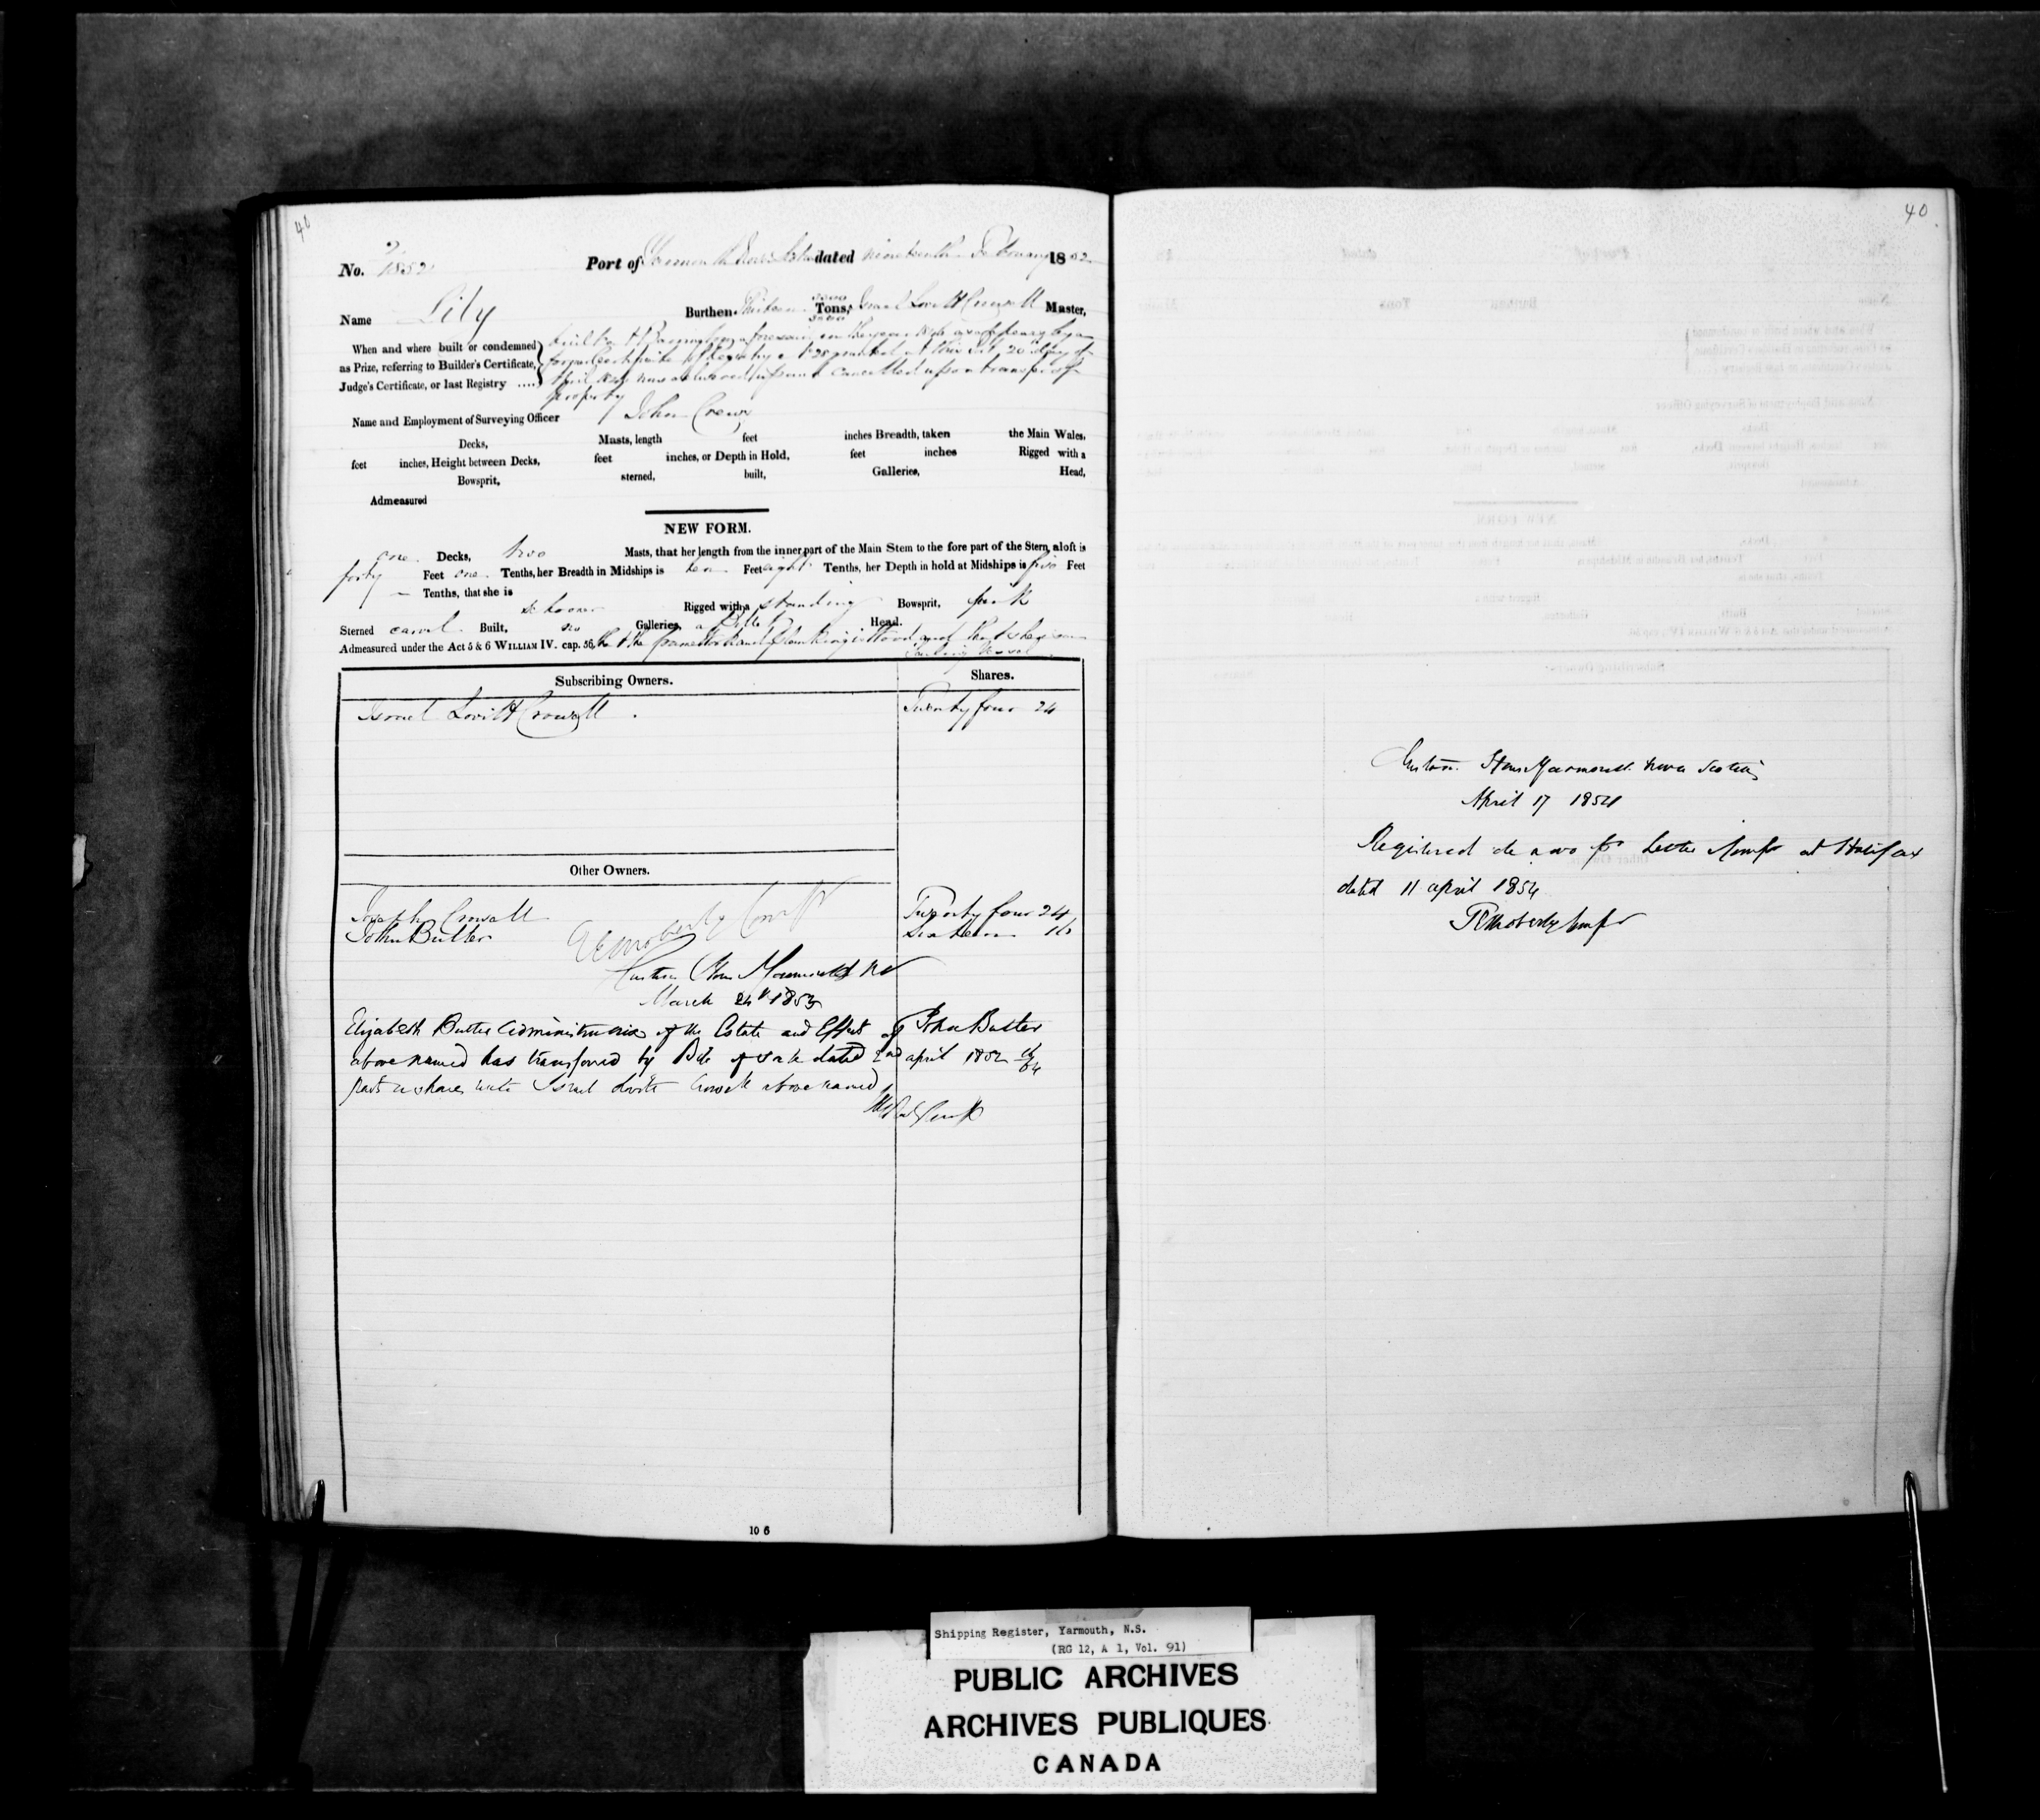 40
No. 2/1852 Port of Yarmouth Nova Scotia dated nineteenth February 1852
Name Lily Burthen Thirteen Tons, Israel Lovitt Crowell Master,
When and where built or condemned
as Prize, referring to Builder's Certificate,
Judge's Certificate, or last Registry ....
built at Barrington aforesaid in the year
former Certificate of Registry granted at this Port 20 day of
April cancelled upon a transfer of
property
Name and Employment of Surveying Officer John Crews
Decks, Masts, length feet inches Breadth, taken the Main Wales,
feet inches, Height between Decks, feet inches, or Depth in Hold, feet inches Rigged with a
Bowsprit, sterned, built, Galleries, Head,
Admeasured
NEW FORM.
one Decks, two Masts, that her length from the inner part of the Main Stem to the fore part of the Stern aloft is
forty Feet one Tenths, her Breadth in Midships is ten Feet eight Tenths, her Depth in hold at Midships is five Feet
— Tenths, that she is
Schooner Rigged with a standing Bowsprit, pink
Sterned carvel Built, no Galleries, a Billet Head.
Admeasured under the Act 5 & 6 WILLIAM IV. cap. 56, that the framework and planking is Wood and that she is a
Sailing Vessel
Subscribing Owners. Shares.
Israel Lovitt Crowell . Twenty four 24
Other Owners.
Joseph Crowell Twenty four 24
John Butler Sixteen 16
Custom House Yarmouth NS
March 24th 1853
Elizabeth Butler Administratrix of the Estate and Effects of John Butler
above named has transferred by Bill of Sale dated 2nd april 1852 16/64
parts or shares unto Israel Lovitt Crowell above named
10 6
40
Custom House Yarmouth Nova Scotia
April 17 1854
Registered de novo pr Letter Compr at Halifax
dated 11 april 1854
Shipping Register, Yarmouth, N.S.
(RG 12, A 1, Vol. 91)
PUBLIC ARCHIVES
ARCHIVES PUBLIQUES
CANADA